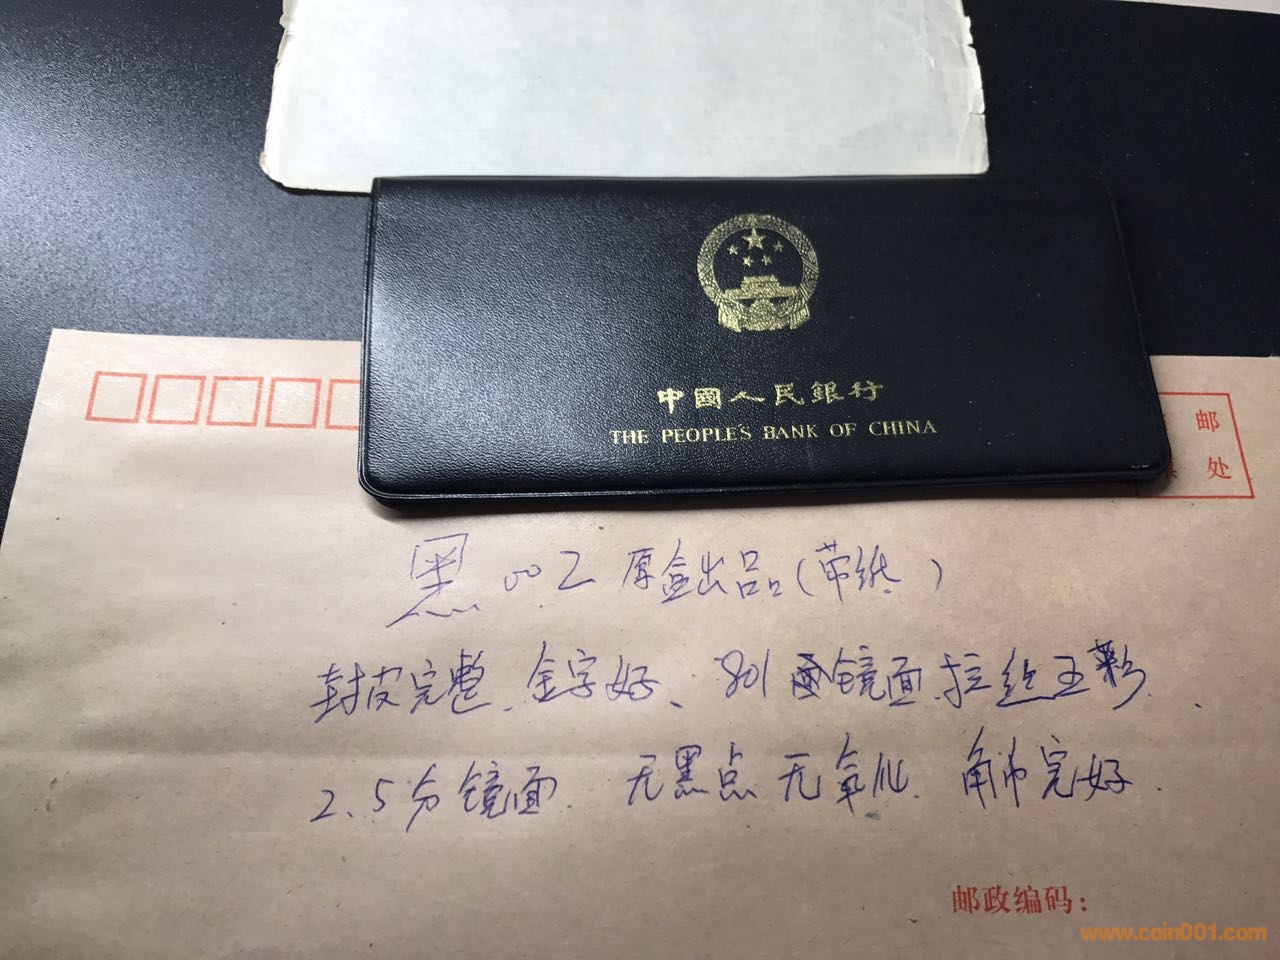 中國人民銀行
THE PEOPLE'S BANK OF CHINA
邮
处
黑002原盒出品(带纸)
封皮完整、金字好、801面镜面、拉丝五彩、
2.5分镜面 无黑点无氧化、角币完好.
邮政编码：
www.coin001.com